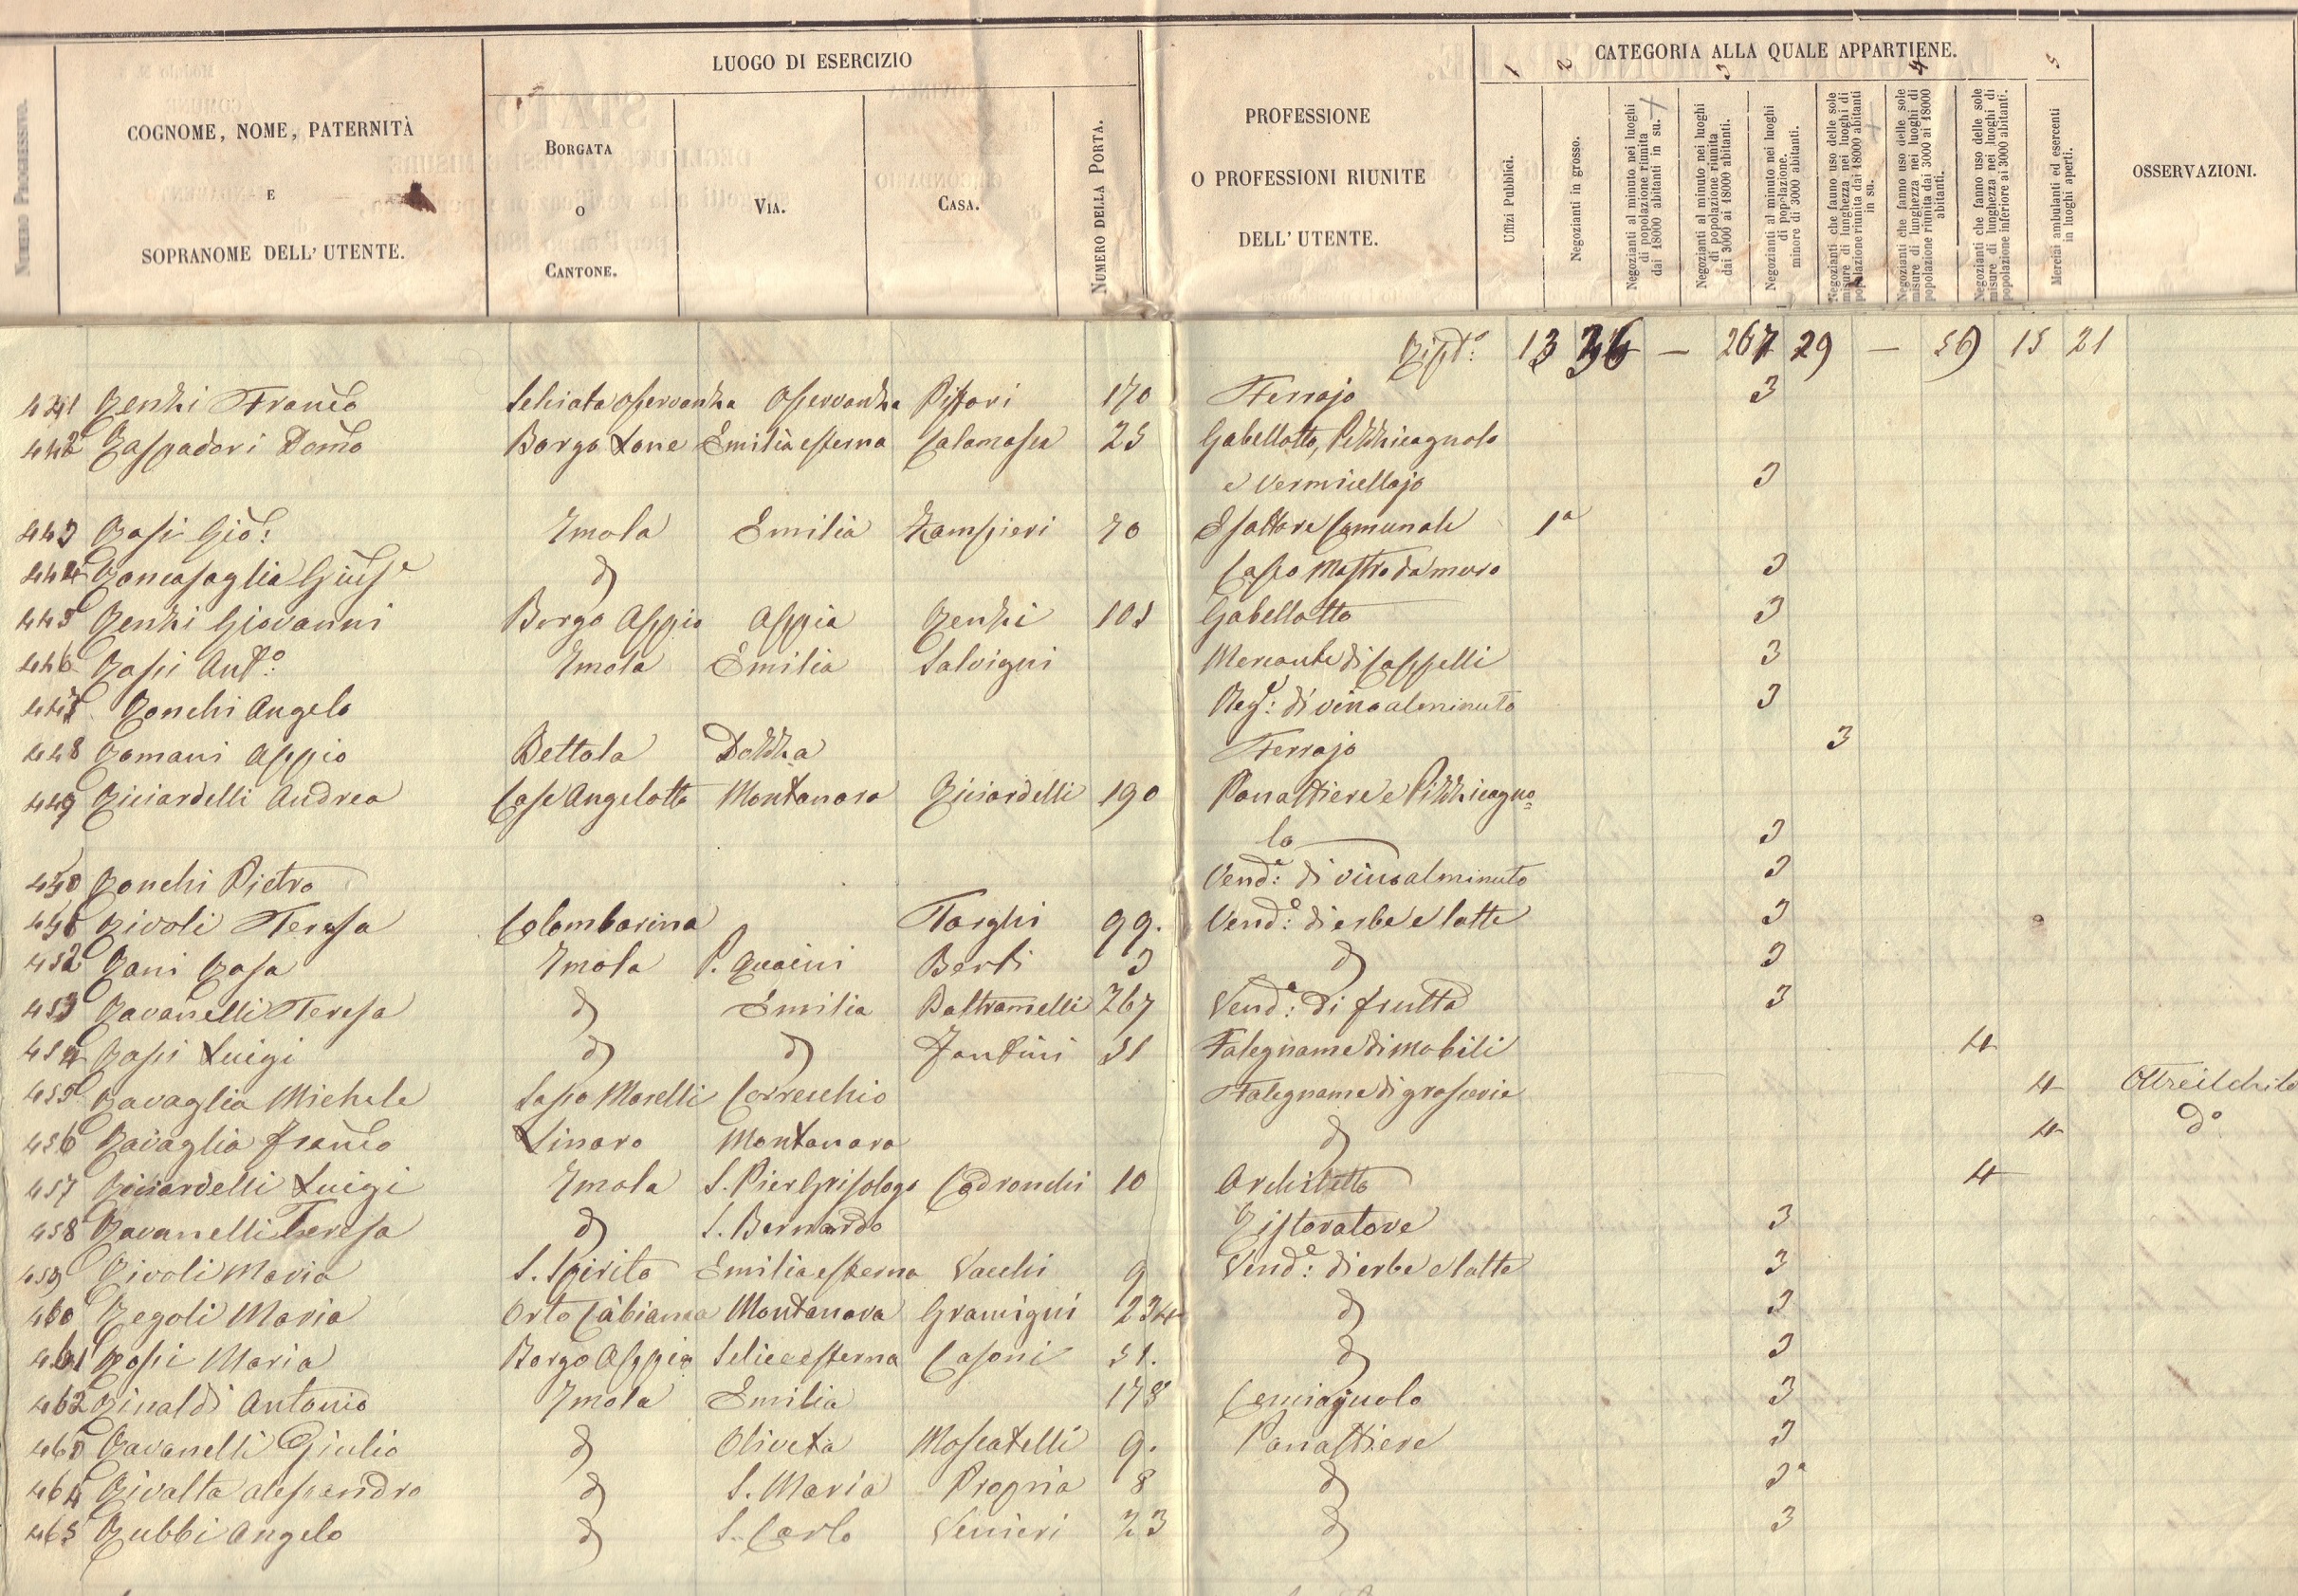 NUMERO PROGRESSIVO.
COGNOME, NOME, PATERNITÀ
E
SOPRANOME DELL' UTENTE.
LUOGO DI ESERCIZIO
BORGATA
O
CANTONE.
VIA.
CASA.
NUMERO DELLA PORTA.
PROFESSIONE
O PROFESSIONI RIUNITE
DELL' UTENTE.
CATEGORIA ALLA QUALE APPARTIENE.
1 2 3 4 5
Uffizi Pubblici.
Negozianti in grosso.
Negozianti al minuto nei luoghi
di popolazione riunita
dai 18000 abitanti in su.
Negozianti al minuto nei luoghi
di popolazione riunita
dai 3000 ai 18000 abitanti.
Negozianti al minuto nei luoghi
di popolazione.
minore di 3000 abitanti.
Negozianti che fanno uso delle sole
misure di lunghezza nei luoghi di
popolazione riunita dai 18000 abitanti
in su.
Negozianti che fanno uso delle sole
misure di lunghezza nei luoghi di
popolazione riunita dai 3000 ai 18000
abitanti.
Negozianti che fanno uso delle sole
misure di lunghezza nei luoghi di
popolazione inferiore ai 3000 abitanti.
Merciai ambulanti ed esercenti
in luoghi aperti.
OSSERVAZIONI.
Riptº: 13 36 — 267 29 — 59 15 21
441 Renzi Franco Osservanza Pistori 170 Ferrajo 3
442 Raspadori Domco Borgo Lone Emilia esterna Calamosca 25 Gabellotto, Pizzicagnolo
e Vermicellajo 3
443 Rossi Gio: Imola Emilia Zampieri 70 Esattore Comunale 1ª
444 Roncasaglia Giuse d Capo Mastro da muro 3
445 Renzi Giovanni Borgo Appio Appia Renzi 101 Gabellotto 3
446 Rossi Antº: Imola Emilia Salvigni Mercante di Cappelli 3
447 Ronchi Angelo Nege: di vino al minuto 3
448 Romani Appio Bettola Dozza Ferrajo 3
449 Ricciardelli Andrea Case Angelotto Montanara Ricciardelli 190 Panattiere e Pizzicagno=
lo 3
450 Ronchi Pietro Vende: di vino al minuto 3
451 Rivoli Teresa Colombarina Farghi 99. Vende: di erbe e latte 3
452 Rani Rosa Imola P. Quaini Berti 3 d 3
453 Ravanelli Teresa d Emilia Baltramelli 267 Vende: di frutta 3
454 Rossi Luigi d d Fantini 51 Falegname di mobili 4
455 Ravaglia Michele Sasso Morelli Correcchio Falegname di grosserie 4
456 Ravaglia Franco Linaro Montanara d 4 dº
457 Ricciardelli Luigi Imola S. Pier Grisologo Codronchi 10 Architetto 4
458 Ravanelli Teresa d S. Bernardo Ristoratore 3
459 Rivoli Maria S. Spirito Emilia esterna Vacchi 9 Vende: di erbe e latte 3
460 Regoli Maria Orto Montanara Gramigni 234 d 3
461 Rossi Maria Borgo Appio Selice esterna Casoni 51. d 3
462 Rinaldi Antonio Imola Emilia 178 3
463 Ravanelli Giulio d Oliveta Moscatelli 9. Panattiere 3
464 Rivalta Alessandro d S. Maria Propria 8 d 3ª
465 Rubbi Angelo d S. Carlo Venieri 23 d 3